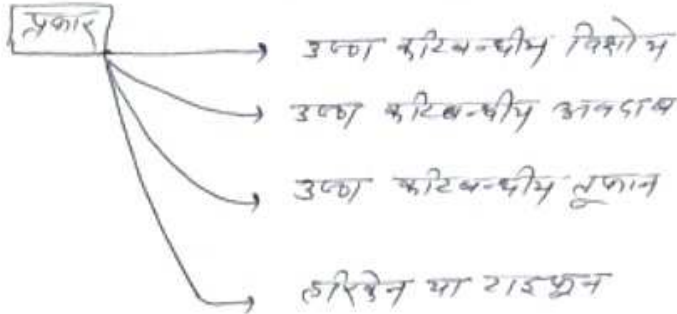 प्रकार
उष्ण कटिबन्धीय विक्षोभ
उष्ण कटिबन्धीय अवदाब
उष्ण कटिबन्धीय तूफान
हरिकेन या टाइफून